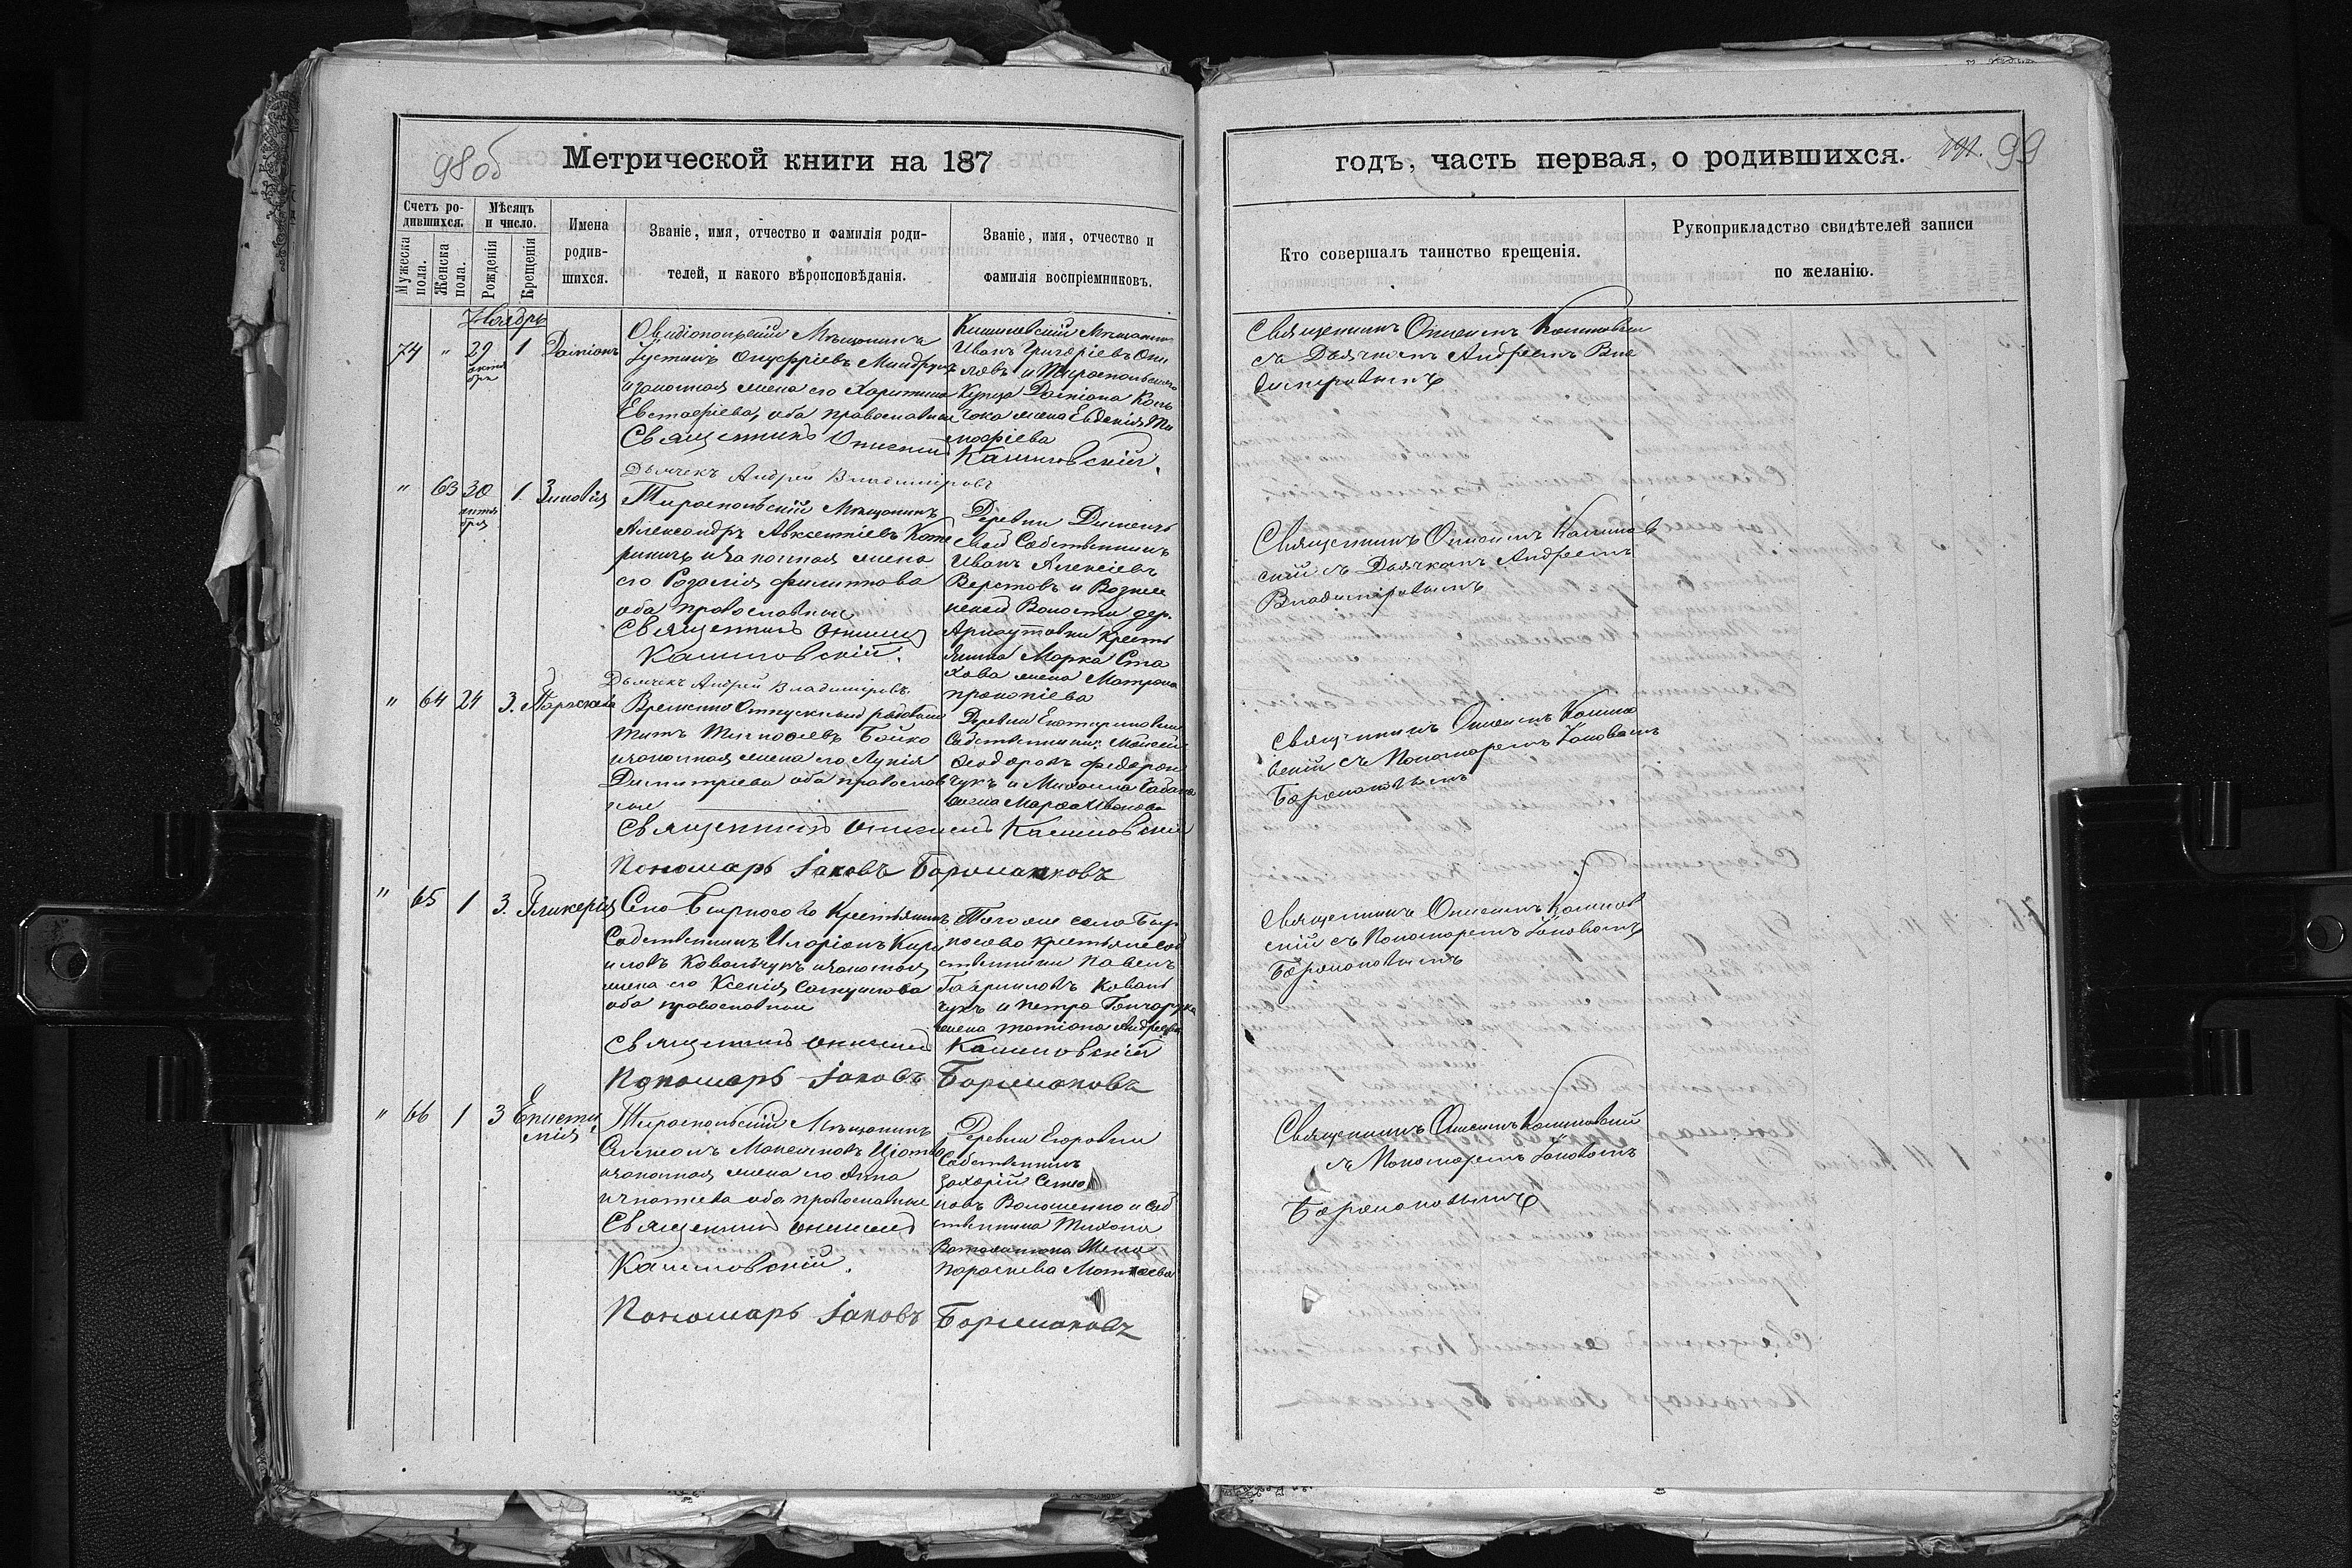 98 об
Метрической книги на 187
Счетъ ро-
дившихся.
Мужеска
пола.
Женска
пола.
Мѣсяцъ
и число.
Рожденія
Крещенія
Имена
родив-
шихся.
Званіе, имя, отчество и фамилія роди-
телей, и какого вѣроисповѣданія.
Званіе, имя, отчество и
фамилія воспріемниковъ.
Ноябрь
74 " 29 1
октя
бря
Овидіопольскій Мѣщанинъ
Іустинъ Онуфріевъ
и законная жена его Харитина
Евстафіева, оба православные
Священникъ Онисимъ
Дьячекъ Андрей Владиміровъ
Кишиневскій Мѣщанинъ
Иванъ Григоріевъ
и Тираспольскаго
Купца
жена Евдокія Ти
мофіева
Калиновскій.
" 63 30 1. Зиновія
октя
бря
Тираспольскій Мѣщанинъ
Александръ Авксентіевъ
и законная жена
его Розалія Филиппова
оба православные
Священникъ Онисимъ
Калиновскій.
Дьячекъ Андрей Владиміровъ.
Деревни
Собственникъ
Иванъ Алексіевъ
Верстовъ и Вознесе
нской Волости дер.
Арнаутовки кресть
янина Марка Ста
хова жена Матрона
Прокопіева
" 64 24 3. Параскева
Временно Отпускной рядовой
Титъ Тимофеевъ Бойко
и законная жена его Лукія
Димитріева оба православ
ные
Священникъ Онисимъ Калиновскій
Пономарь Іаковъ
Деревни Екатериновки
Собственники: Моисей
Феодоровъ Федорон
чукъ и Михаила
жена Марфа Иванова
" 65 1 3. Гликерія
Село Бирносово Крестьянинъ
Собственникъ Иларіонъ Кири
иловъ Ковальчукъ и законная
жена его Ксенія
оба православные
Священникъ Онисимъ
Пономарь Іаковъ
Того же села Бир
носово крестьяне соб
ственники Павелъ
Гавриловъ Коваль
чукъ и Петра Гончарука
жена Татіана Андреева
Калиновскій
" 66 1 3 Еписти
мія
Тираспольскій Мѣщанинъ
и законная жена его Анна
Игнатьева оба православные
Священникъ Онисимъ
Калиновскій.
Пономарь Іаковъ
Деревни Егоровки
Собственникъ
Захарій Семео
новъ Волошенко и Соб
ственника Тихона
Жена
Параскева Матфеева
годъ, часть первая, о родившихся.
99
Кто совершалъ таинство крещенія.
Рукоприкладство свидѣтелей записи
по желанію.
Священникъ Онисимъ Калиновскій
съ Дьячкомъ Андреемъ Вла
диміровымъ
Священникъ Онисимъ Калинов
скій съ Дьячкомъ Андреемъ
Владиміровымъ
Священникъ Онисимъ Калино
вскій съ Пономаремъ Іаковомъ
Священникъ Онисимъ Калинов
скій съ Пономаремъ Іаковомъ
Священникъ Онисимъ Калиновскій
съ Пономаремъ Іаковомъ